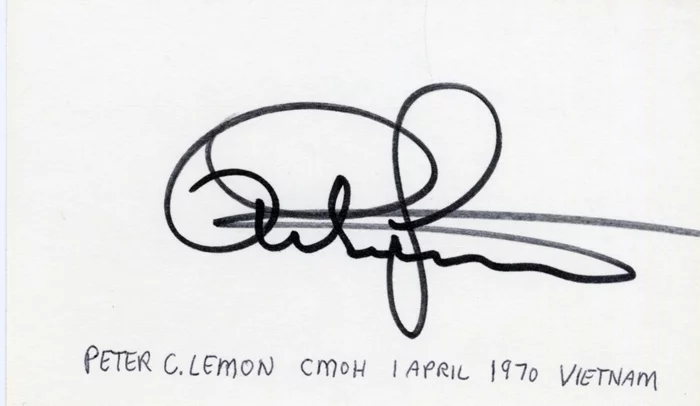 PETER C. LEMON CMOH 1 APRIL 1970 VIETNAM